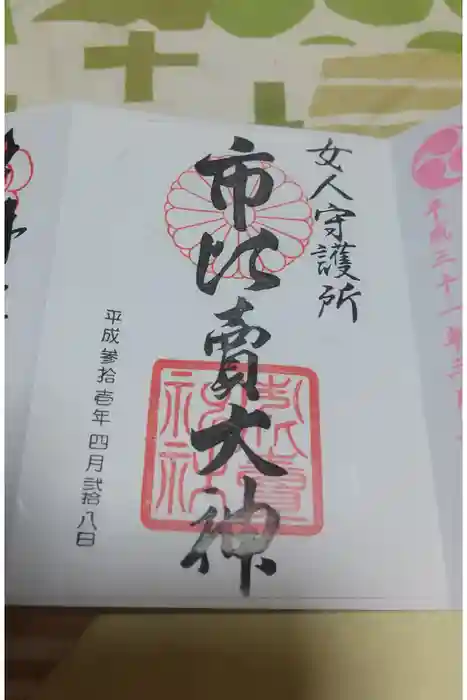 女人守護所
市比賣大神
平成参拾壱年四月弐拾八日
平成三十一年三